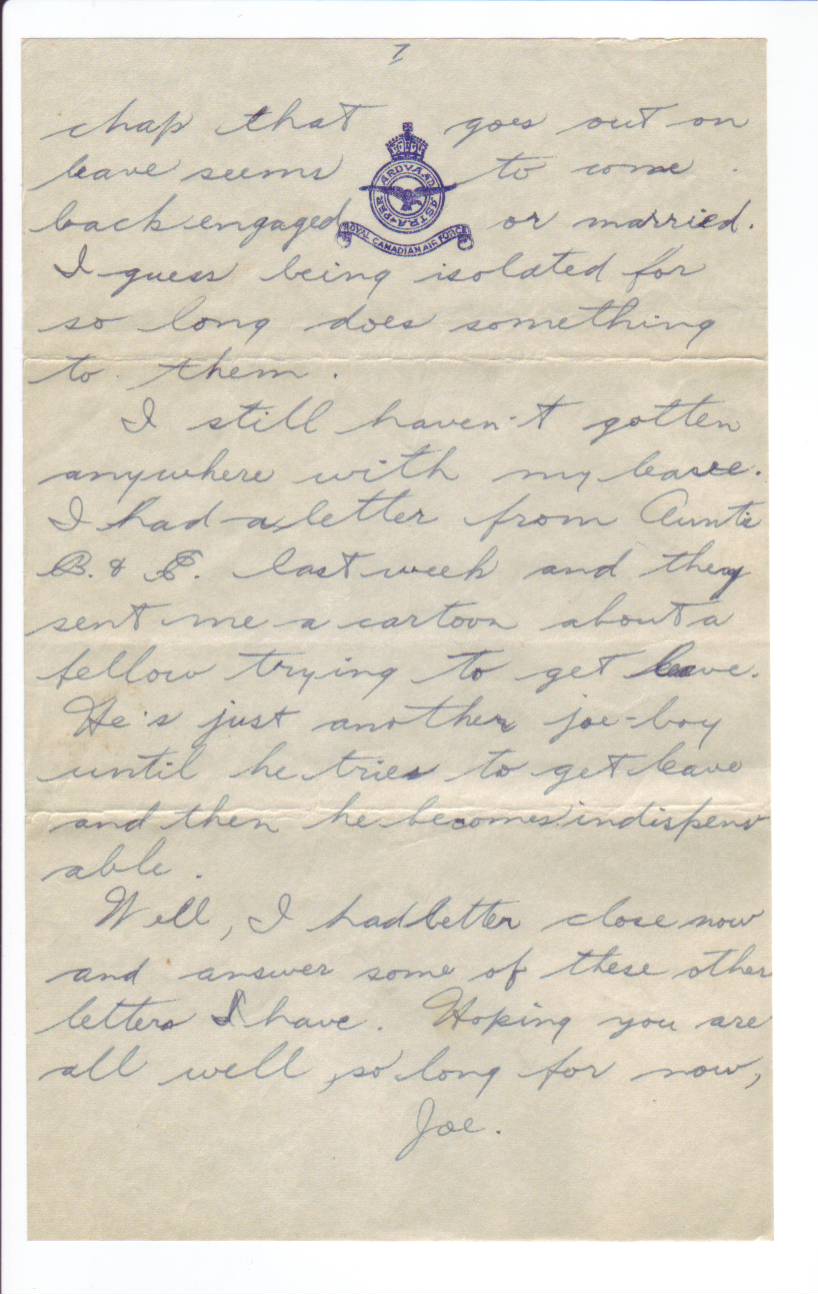 7
chap that goes out on
leave seems to come
back engaged or married.
PER ARDVA AD ASTRA
ROYAL CANADIAN AIR FORCE
I guess being isolated for
so long does something
to them.
I still haven't gotten
anywhere with my leave.
I had a letter from Aunts
B. & E. last week and they
sent me a cartoon about a
fellow trying to get leave.
He's just another joe-boy
until he tries to get leave
and then he becomes indispens
able.
Well, I had better close now
and answer some of these other
letters I have. Hoping you are
all well, so long for now,
Joe.